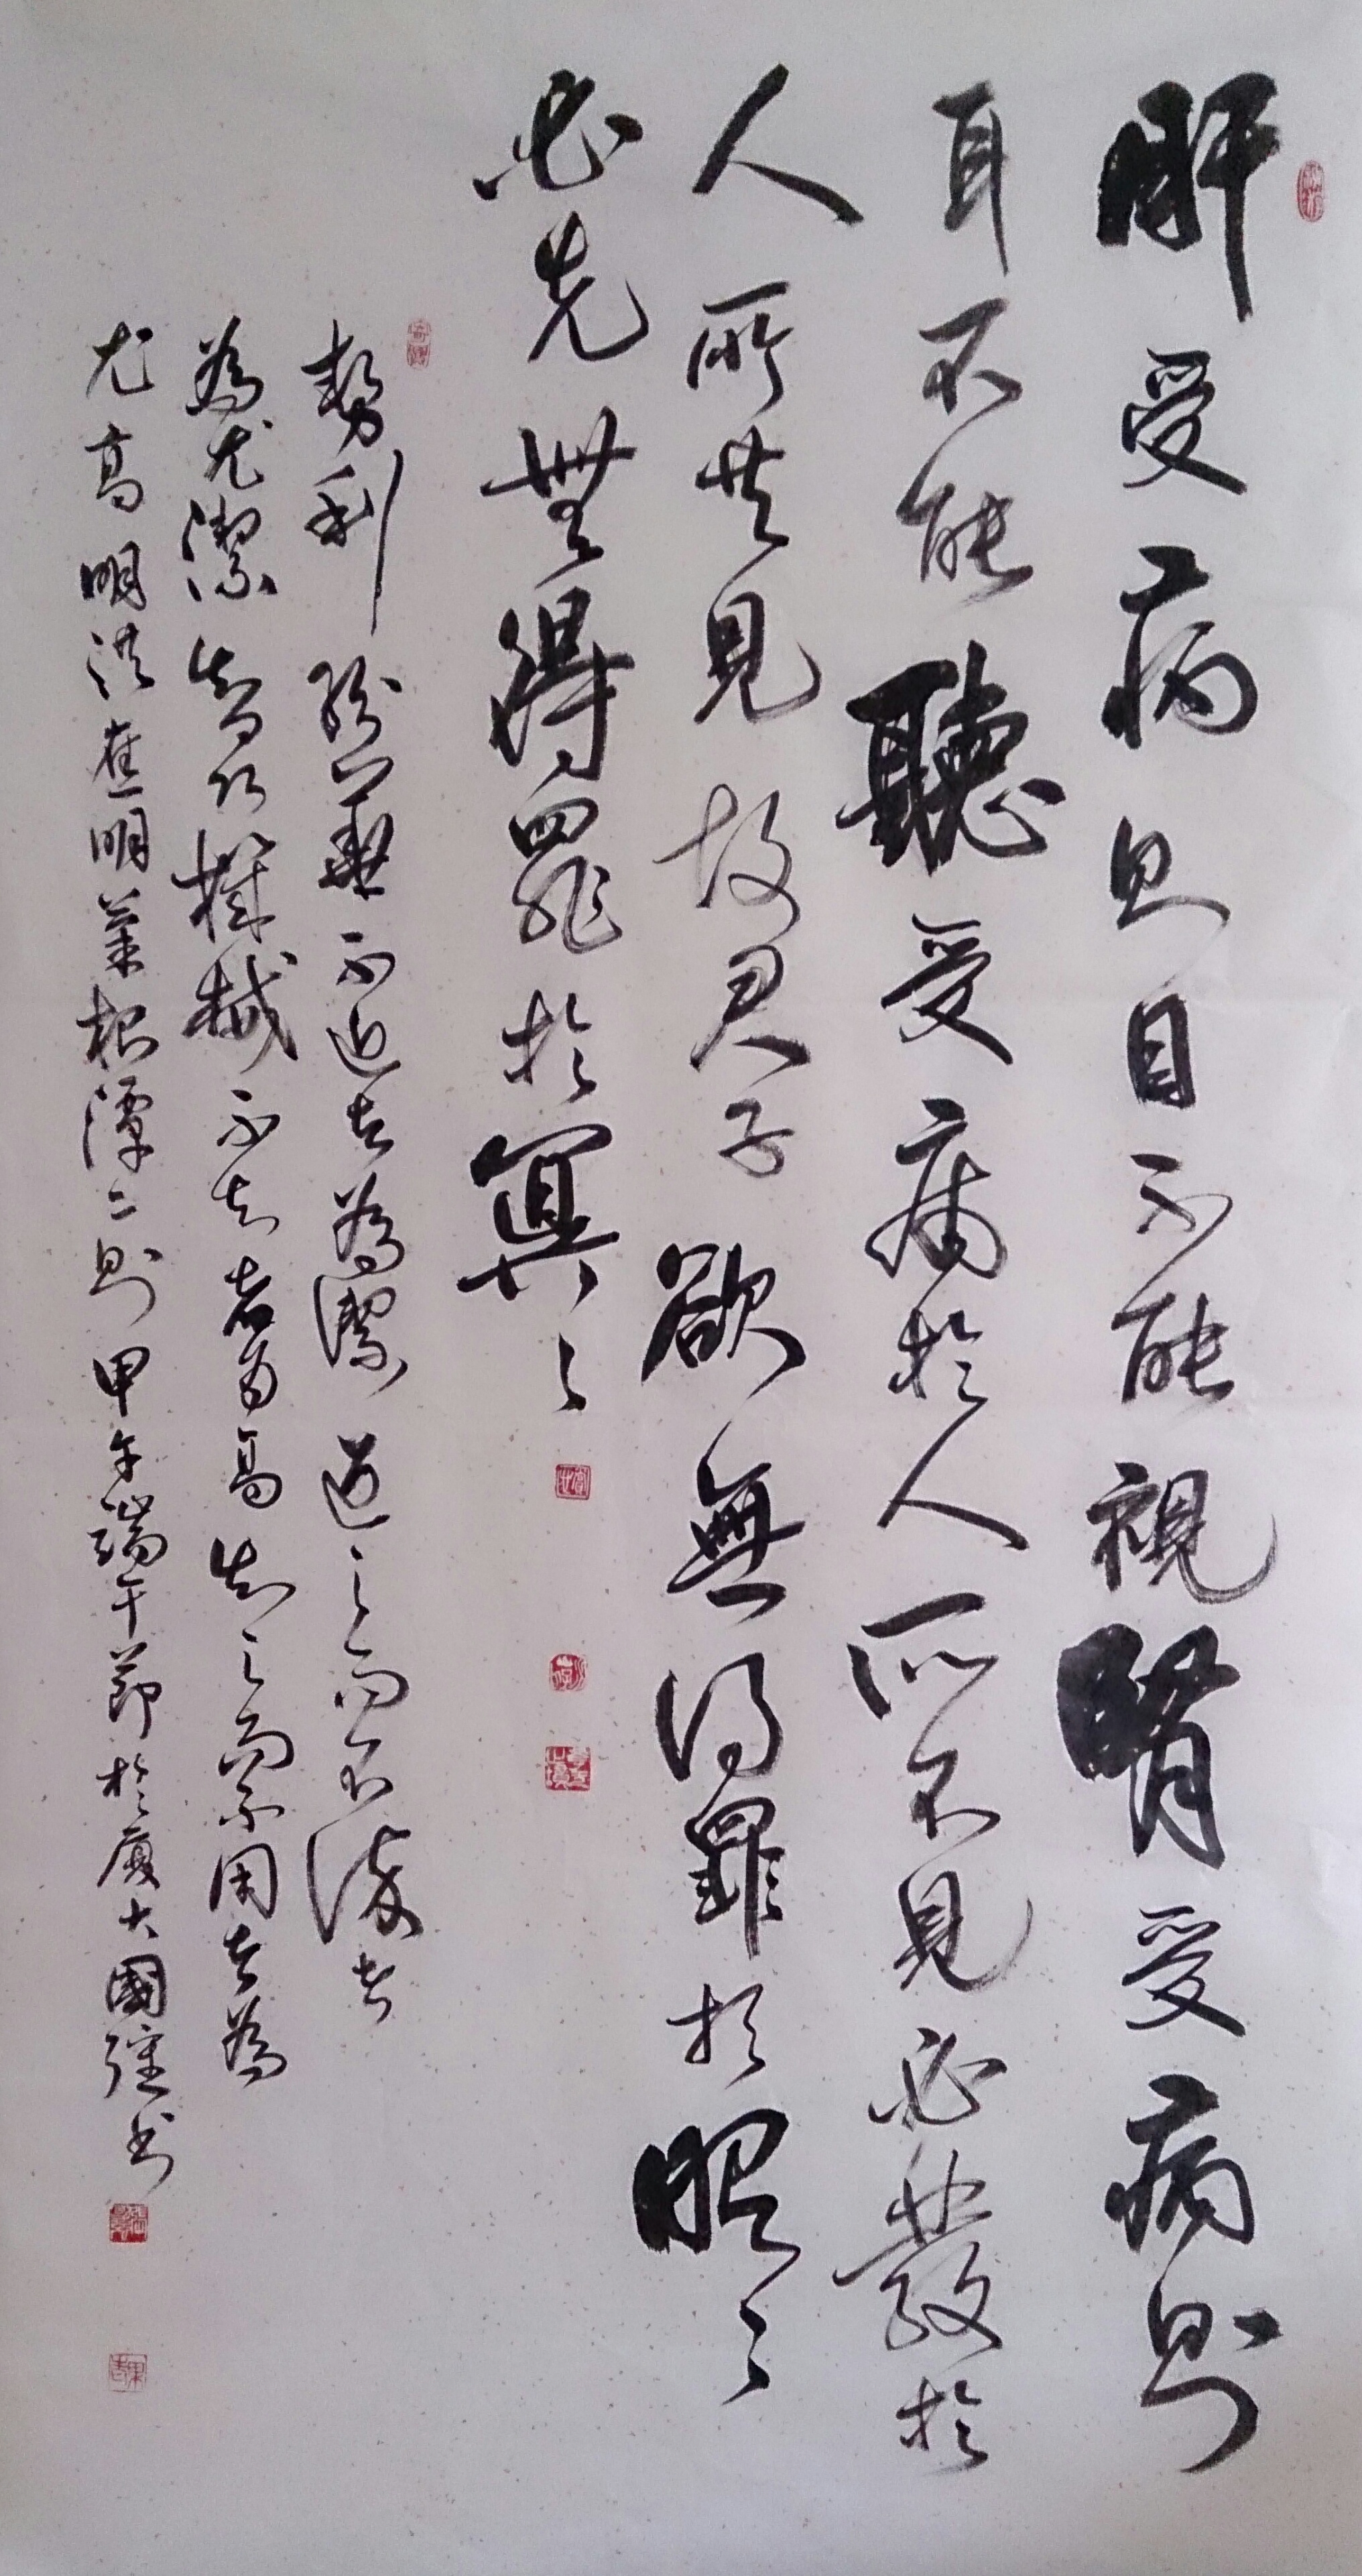 肝受病則目不能視腎受病則
耳不能聽受病於人所不見必發於
人所共見故君子欲無得罪於昭々
必先無得罪於冥々
勢利紛華不近者為潔近之而不染者
為尤潔智巧機械不知者為高知之而不用者為
尤高明洪應明菜根潭二則甲午端午節於廈大國強書